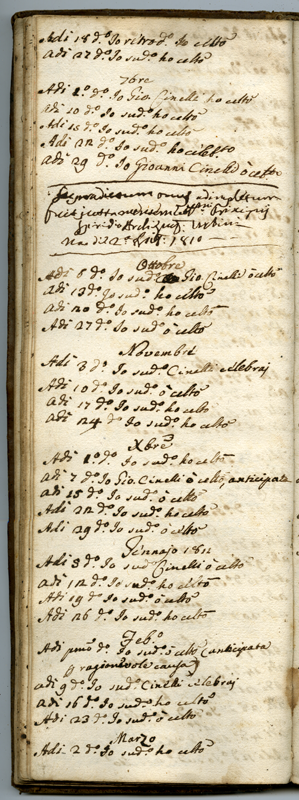 Adi 18 d.º Io ritrod.º Io celtò
adi 27 d.º Io sud.º ho celtò
7bre
Adi 2.º d.º Io Gio. Cinelli ho celtò
adi 10 d.º Io sud.º ho celtò
Adi 15 d.º Io sud.º ho celtò
Adi 22 d.º Io sud.º ho celebtò
adi 29 d.º Io Giovanni Cinelli ò celtò
onus adimpletum
1810
Ottobre
Adi 6 d.º Io sud.º Gio. Cinelli ò celtò
adi 13 d.º Io sud.º ho celtò
adi 20 d.º Io sud.º ho celtò
Adi 27 d.º Io sud.º ò celtò
Novembre
Adi 3 d.º Io sud.º Cinelli celebraj
Adi 10 d.º Io sud.º ò celtò
adi 17 d.º Io sud.º ho celtò
adi 24 d.º Io sud.º ho celtò
Xbre
Adi 1.º d.º Io sud.º ho celtò
adi 7 d.º Io Gio. Cinelli ò celtò, anticipata
adi 15 d.º Io sud.º ò celtò
Adi 22 d.º Io sud.º ho celtò
Adi 29 d.º Io sud.º ò celtò
Jennajo 1811
Adi 5 d.º Io sud.º Cinelli ò celtò
adi 12 d.º Io sud.º ho celtò
Adi 19 d.º Io sud.º ò celtò
Adi 26 d.º Io sud.º ho celtò
Feb.º
Adi pmo d.º Io sud.º ò celtò (anticipata
ragionevole causa)
adi 9 d.º Io sud.º Cinelli celebraj
adi 16 d.º Io sud.º ho celtò
Adi 23 d.º Io sud.º ò celtò
Marzo
Adi 2 d.º Io sud.º ho celtò